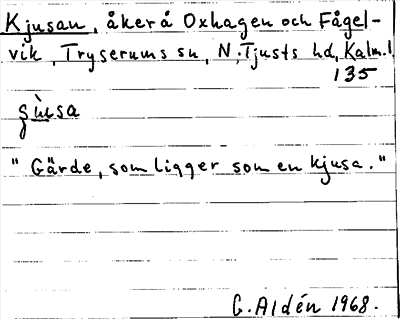 Kjusan, åker å Oxhagen och Fågel-
vik, Tryserums sn, N. Tjusts hd, Kalm. l.
135
"Gärde, som ligger som en kjusa."
G. Aldén 1968.